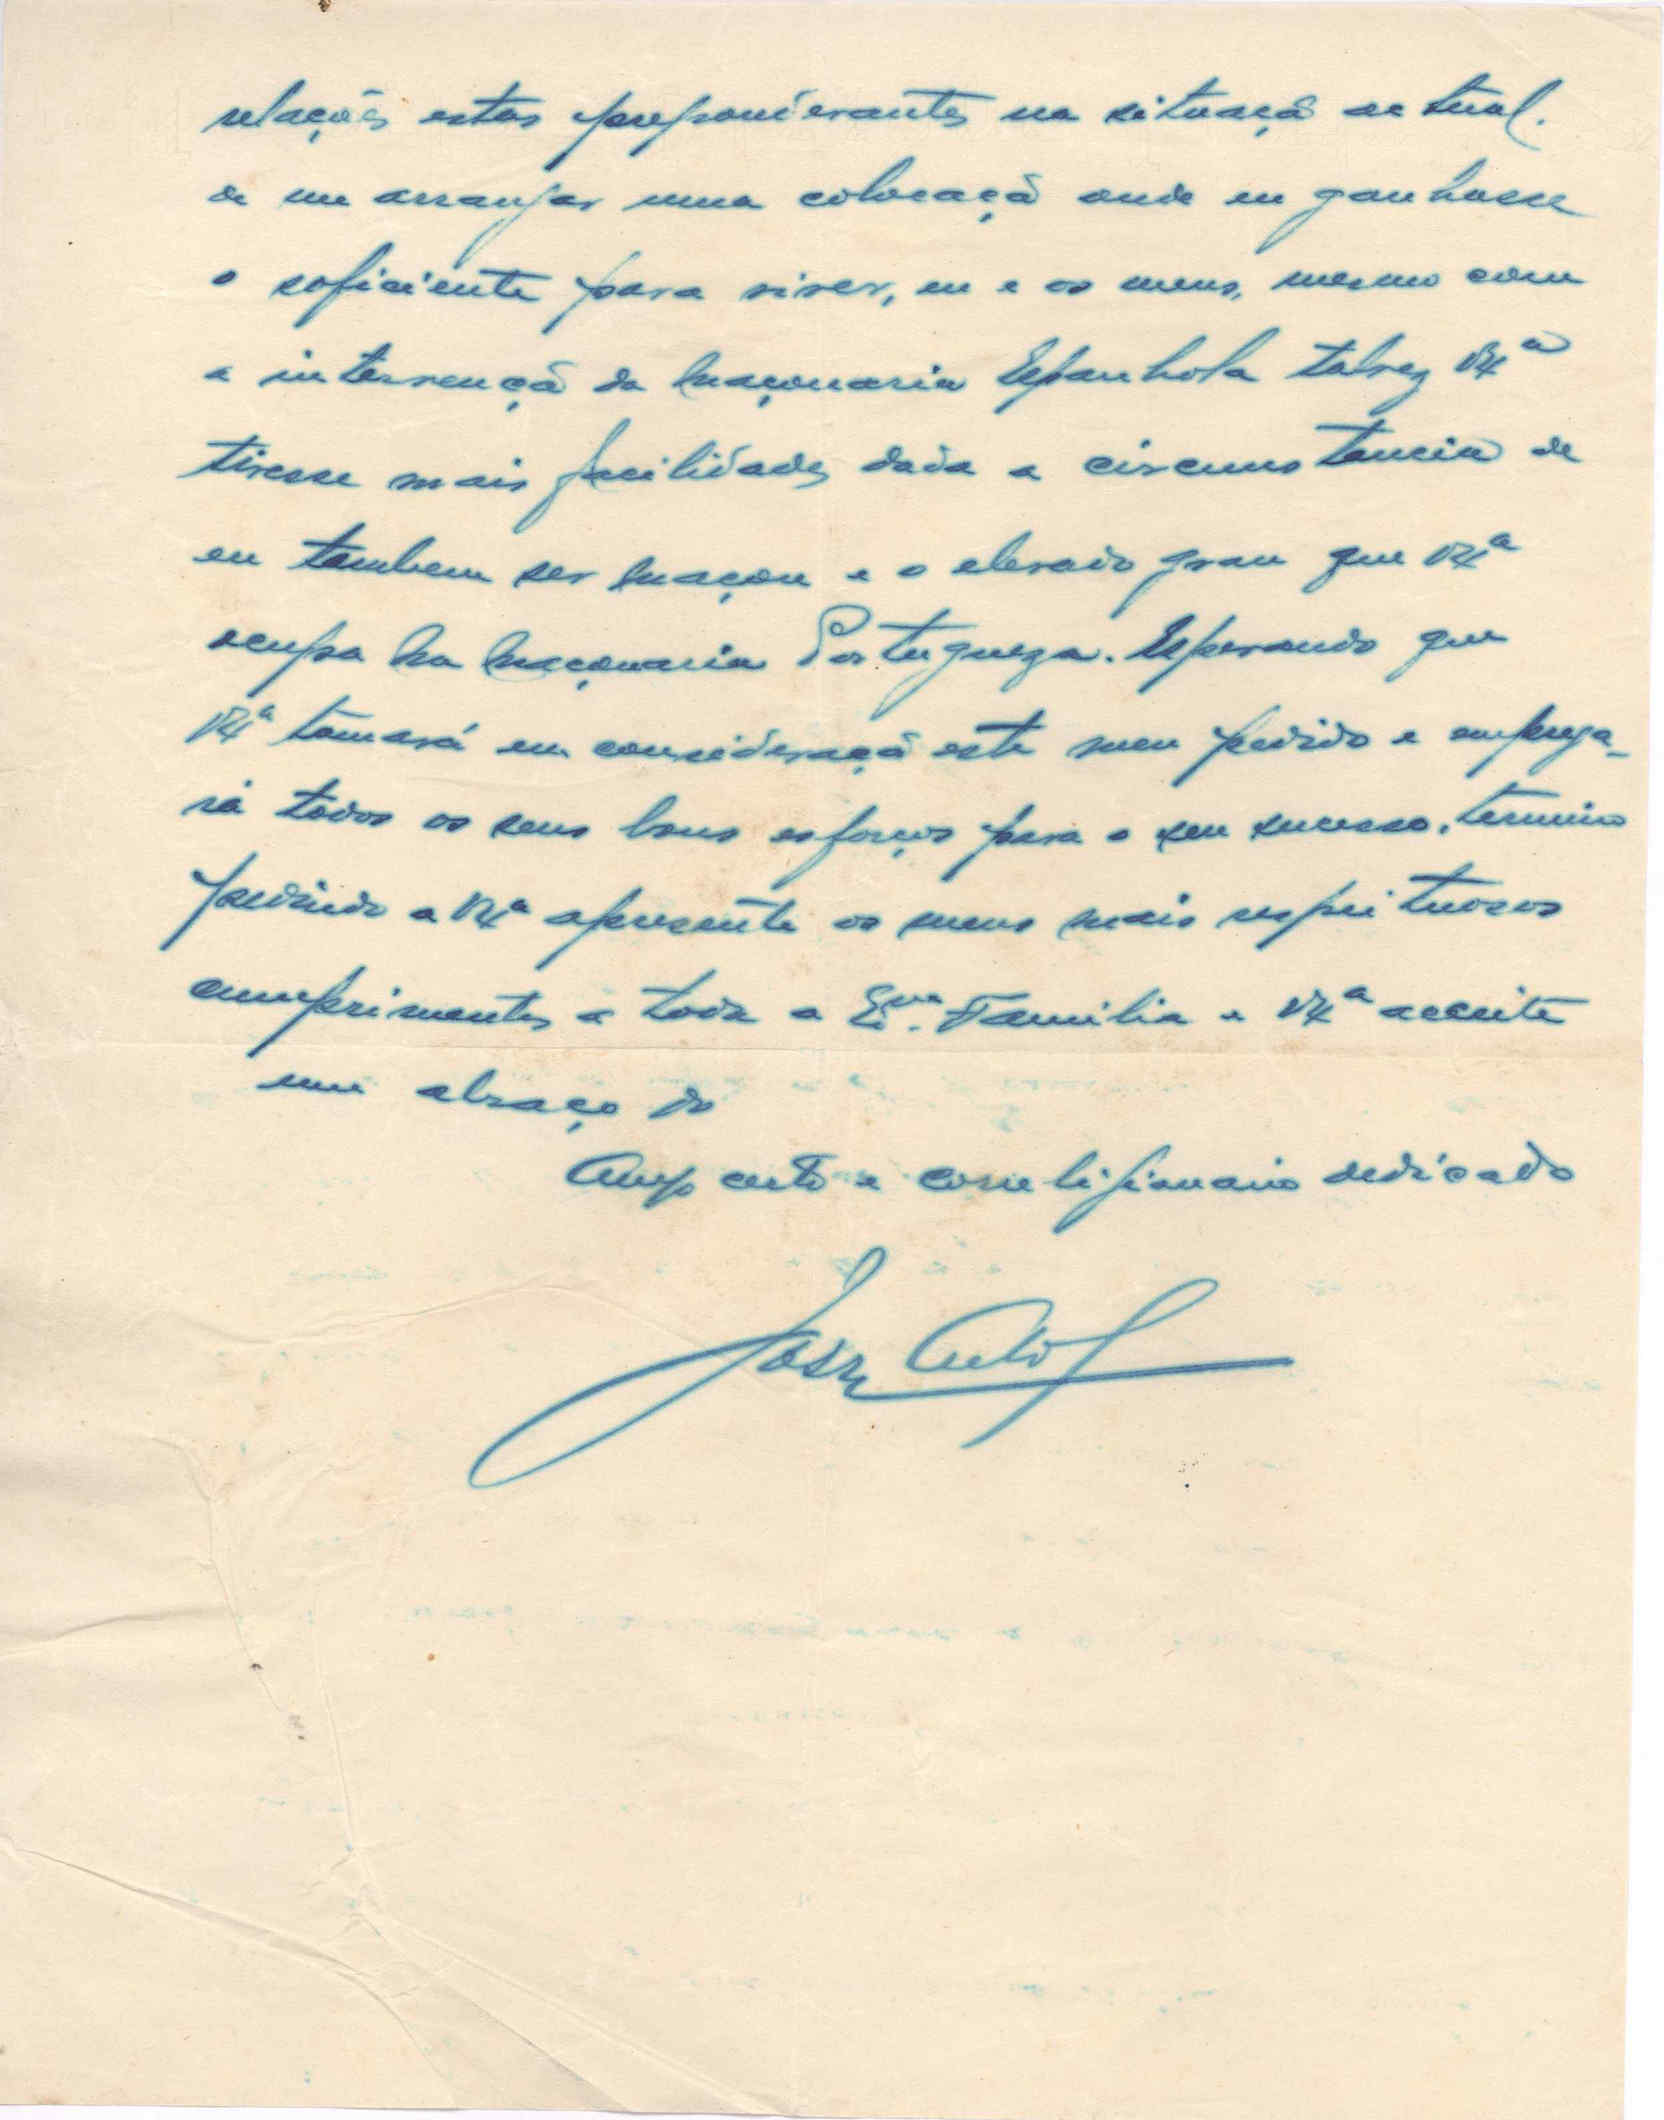 relaçoẽs estas preponderantes na situaçã actual.
de me arranjar uma colocaçã onde eu ganhasse
o soficiente para viver, eu e os meus, mesmo com
a intervençã da Maçonaria Espanhola talvez VExª
tivesse mais facilidades dada a circumstancia de
eu tambem ser Maçon e o elevado grau que VExª
ocupa na Maçonaria Portugueza. Esperando que
VExª tomará em consideraçã este meu pedido e emprega-
rá todos os seus bons esforços para o seu sucesso, termino
pedindo a VExª apresente os meus mais respeituosos
cumprimentos a toda a Exma. Familia e VExª acceite
um abraço do
Amº certo e correligionario dedicado
José